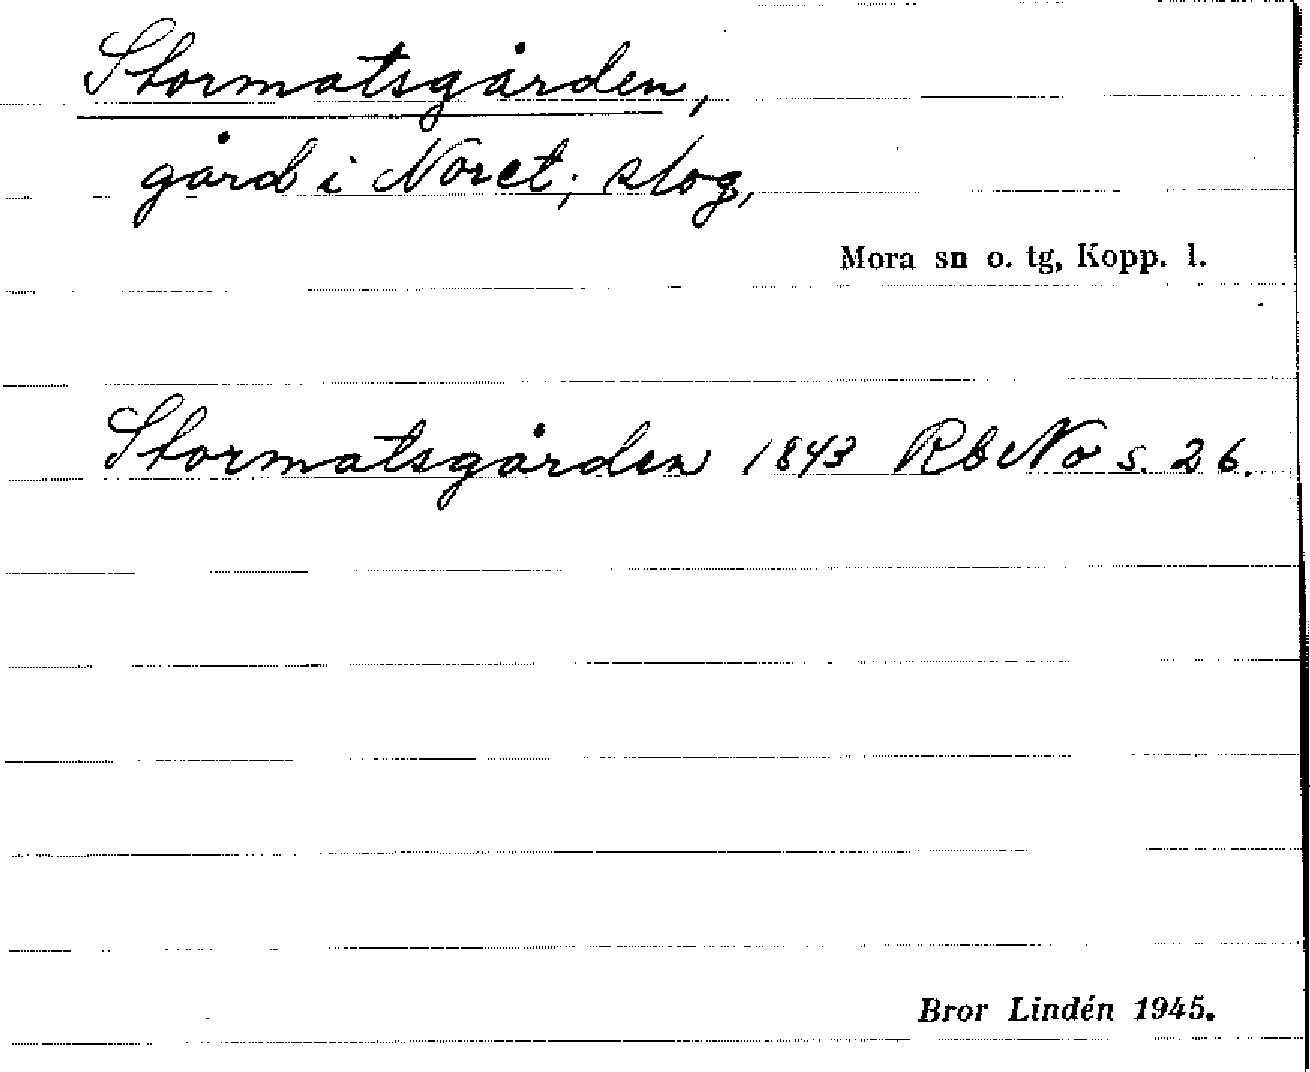 Stormatsgården,
gård i Noret; slog,
Mora sn o. tg, Kopp. l.
Stormatsgården 1843 RbNo s. 26.
Bror Lindén 1945.